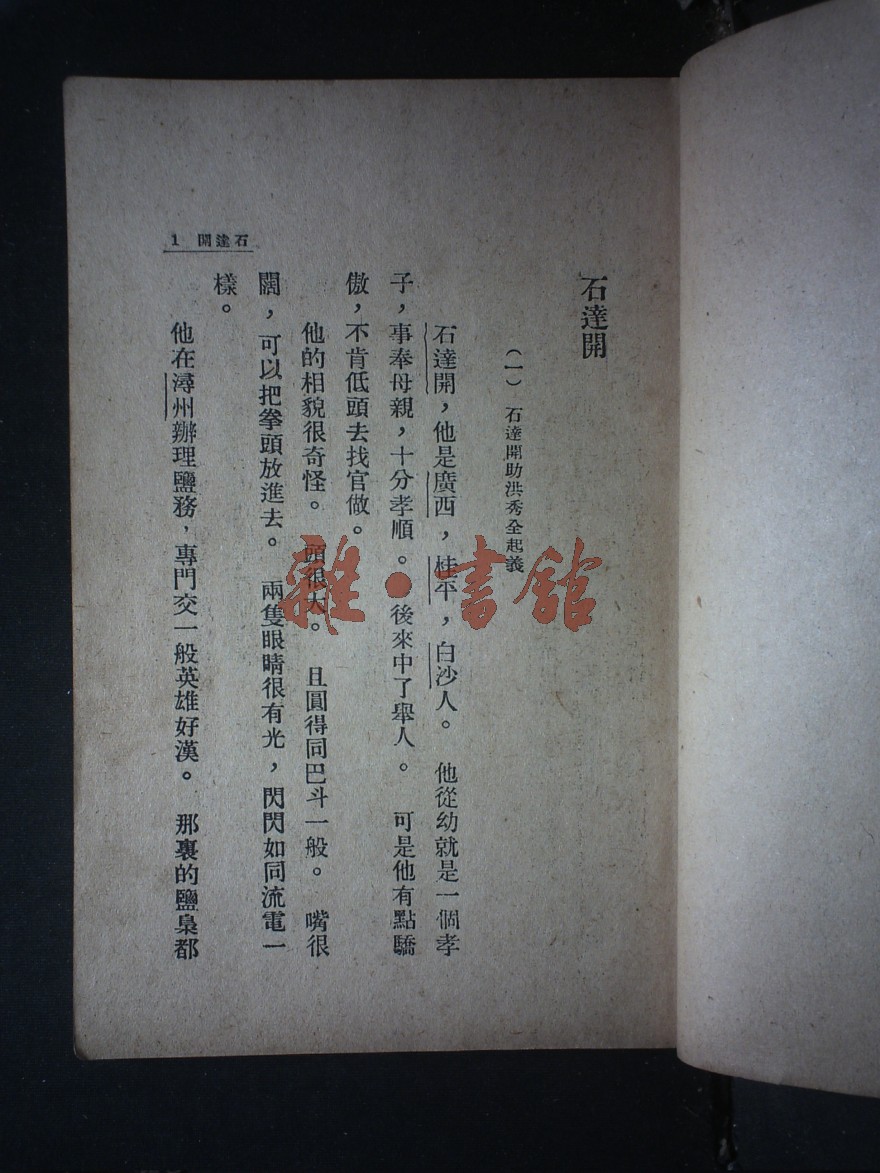 石達開
(一) 石達開助洪秀全起義
石達開,他是廣西,桂平,白沙人。 他從幼就是一個孝
子,事奉母親,十分孝順。 後來中了舉人。 可是他有點驕
傲,不肯低頭去找官做。
他的相貌很奇怪。 頭很大。 且圓得同巴斗一般。 嘴很
闊,可以把拳頭放進去。 兩隻眼睛很有光,閃閃如同流電一
樣。
他在潯州辦理鹽務,專門交一般英雄好漢。 那裏的鹽梟都
石達開 1
雜·書館